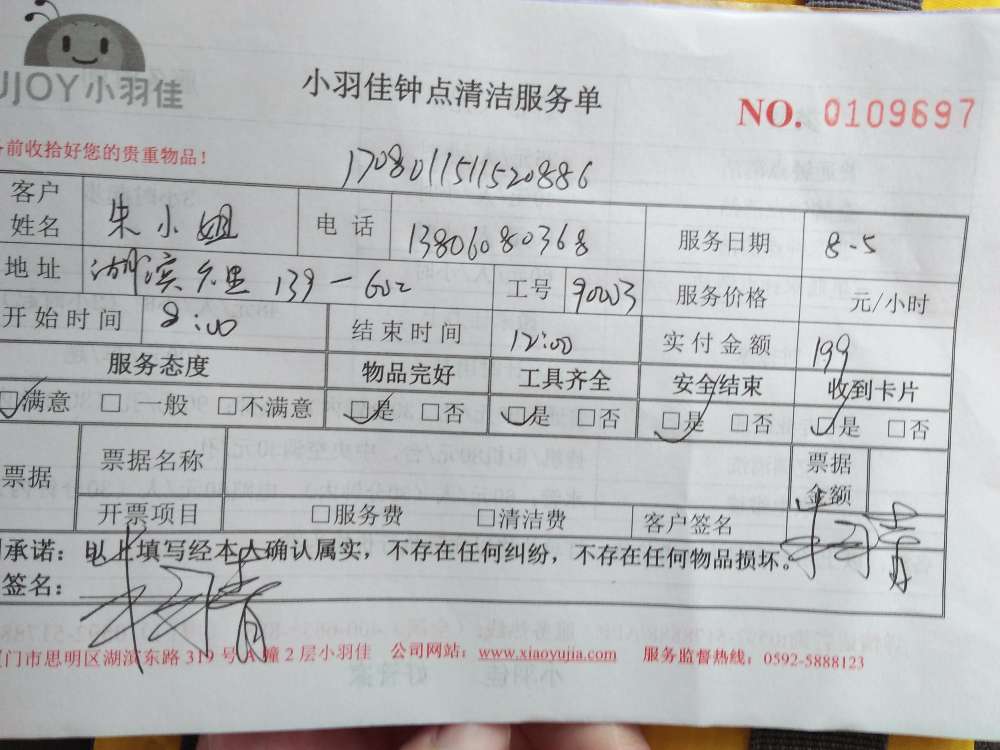 UJOY小羽佳
小羽佳钟点清洁服务单
NO. 0109697
前收拾好您的贵重物品!
1708011511520886
客户姓名 朱小姐 电话 13806080368 服务日期 8-5
地址 湖滨六里 139-602 工号 90003 服务价格 元/小时
开始时间 8:00 结束时间 12:00 实付金额 199
服务态度 物品完好 工具齐全 安全结束 收到卡片
☑满意 □一般 □不满意 ☑是 □否 ☑是 □否 ☑是 □否 ☑是 □否
票据 票据名称 票据金额
开票项目 □服务费 □清洁费 客户签名
承诺:以上填写经本人确认属实,不存在任何纠纷,不存在任何物品损坏。
签名:
门市思明区湖滨东路319号A幢2层小羽佳 公司网站:www.xiaoyujia.com 服务监督热线:0592-5888123